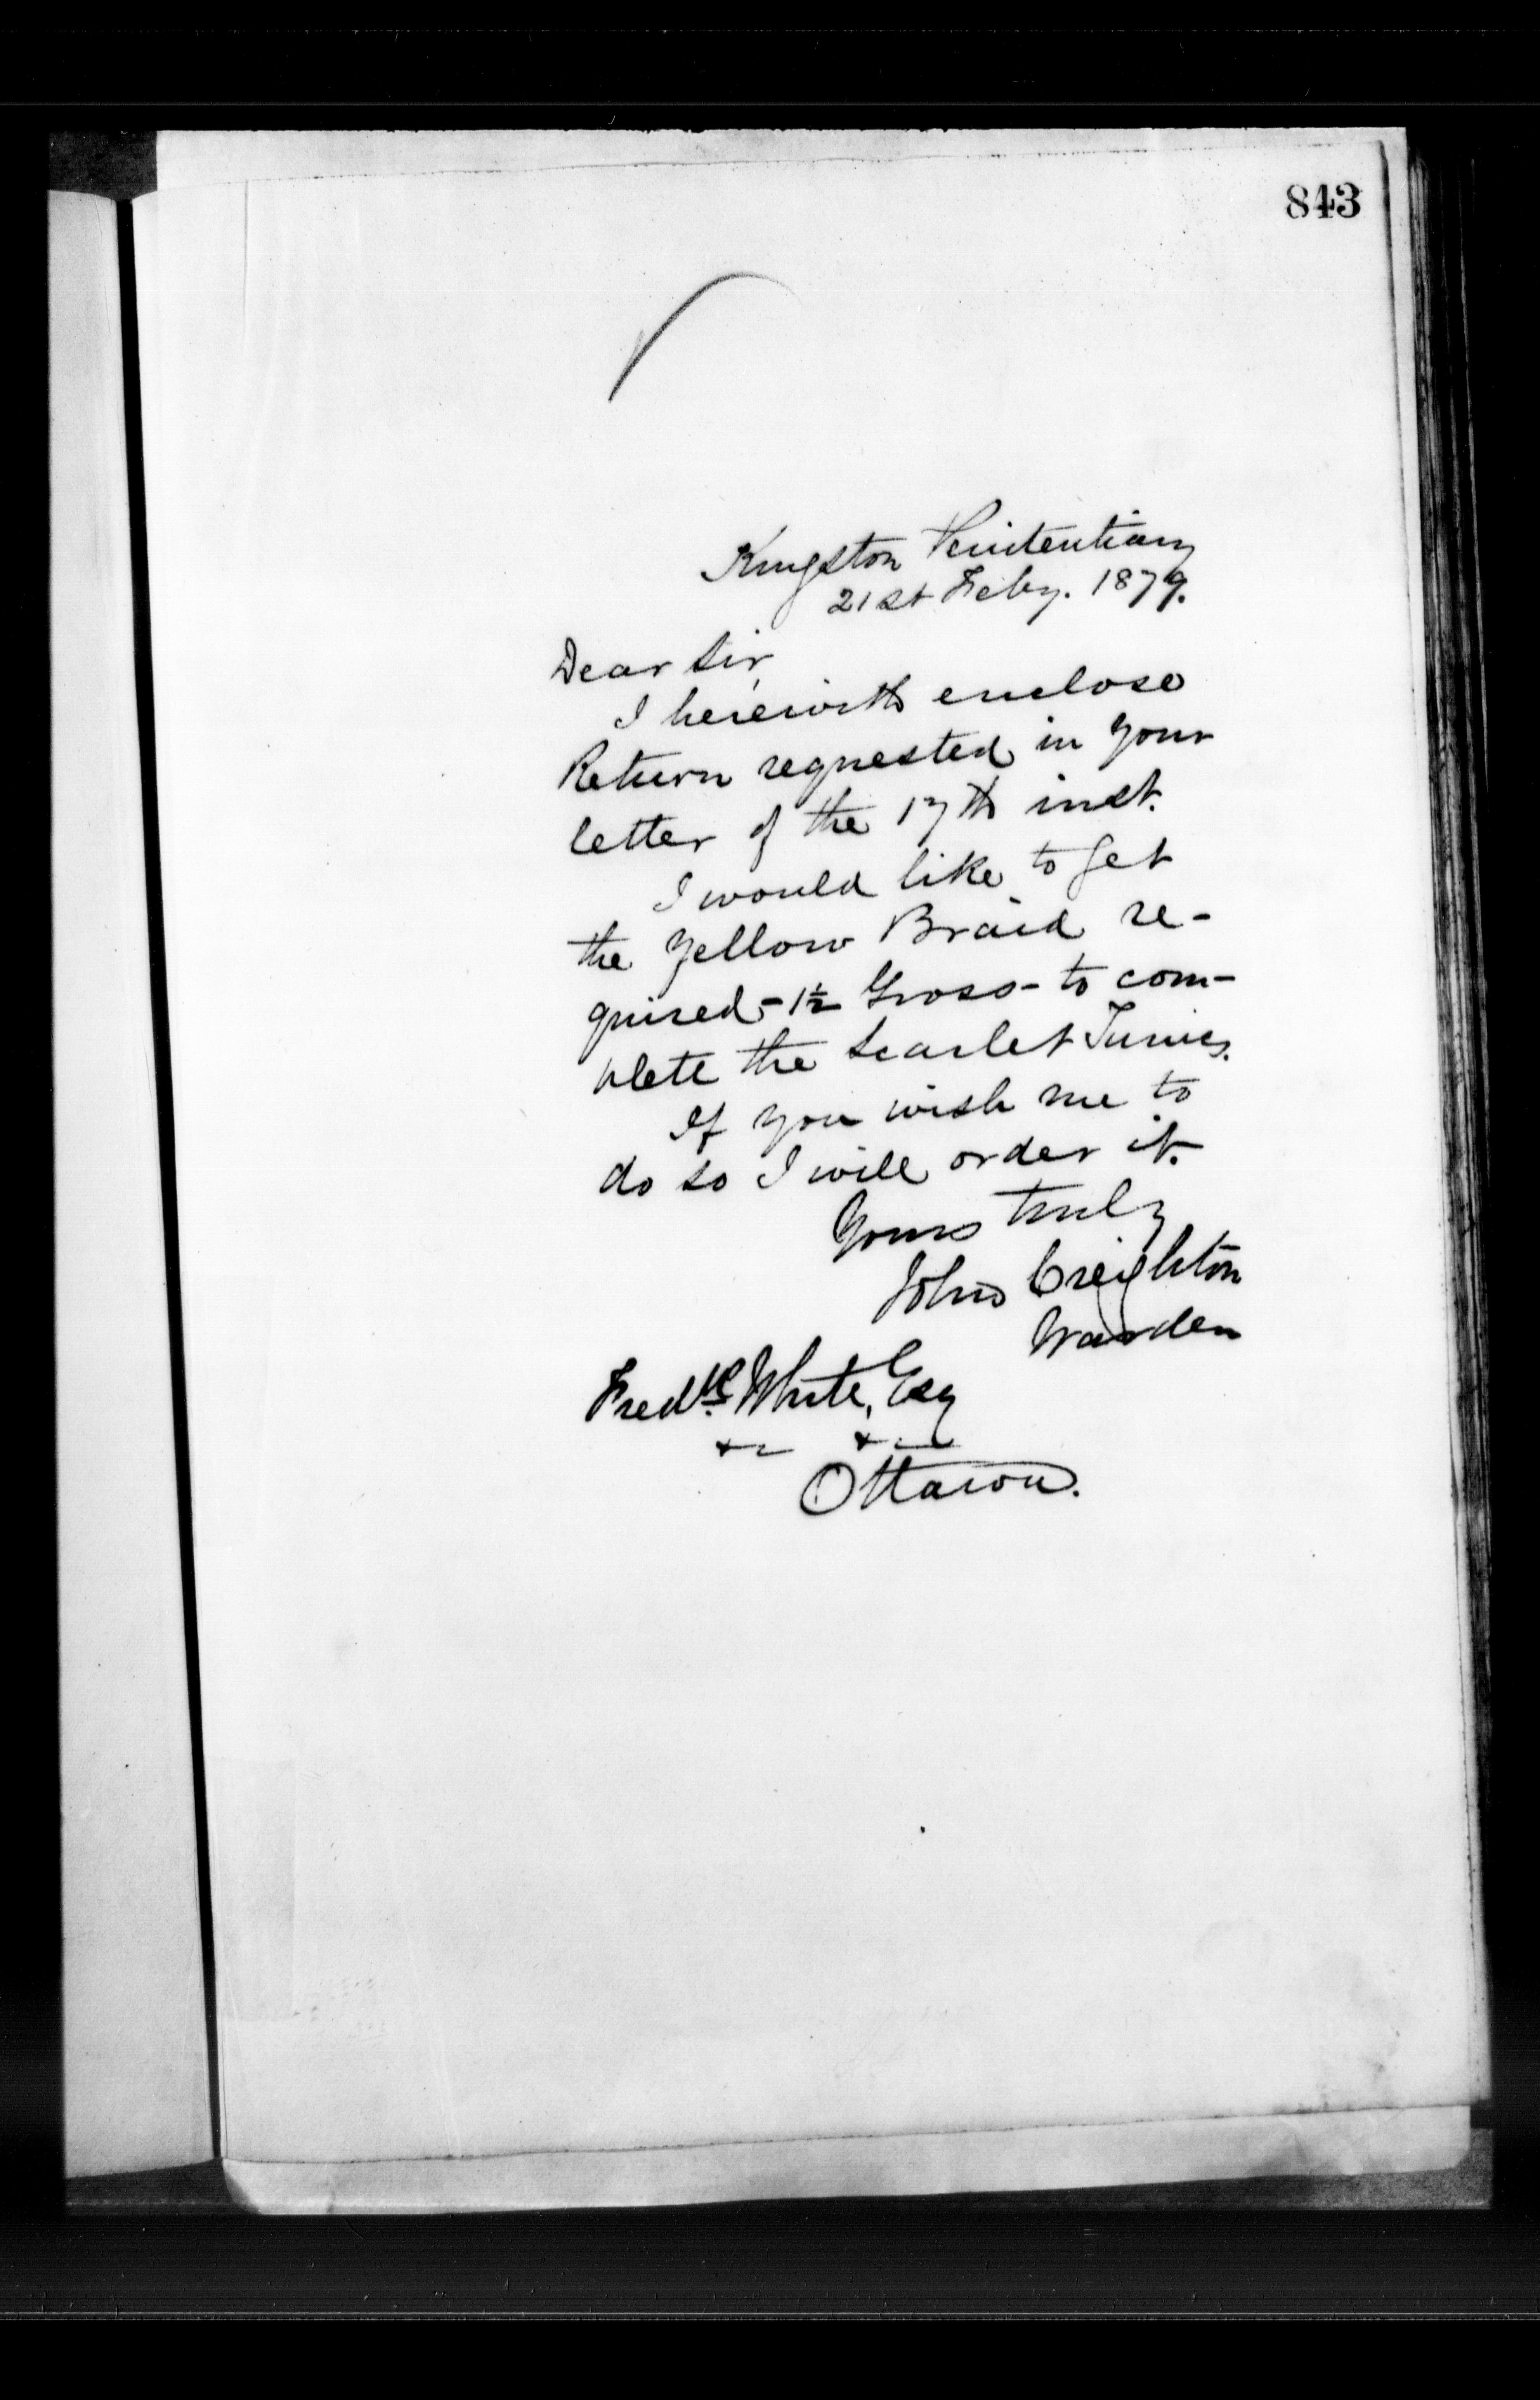 843
Kingston Penitentiary
21st Feby. 1879.
Dear Sir,
I herewith enclose
Return requested in your
letter of the 17th inst.
I would like to get
the Yellow Braid re-
quired - 1½ Gross - to com-
plete the Scarlet Tunics.
If you wish me to
do so I will order it.
Yours truly
John Creighton
Warden
Fredk. White, Esq
&c &c
Ottawa.